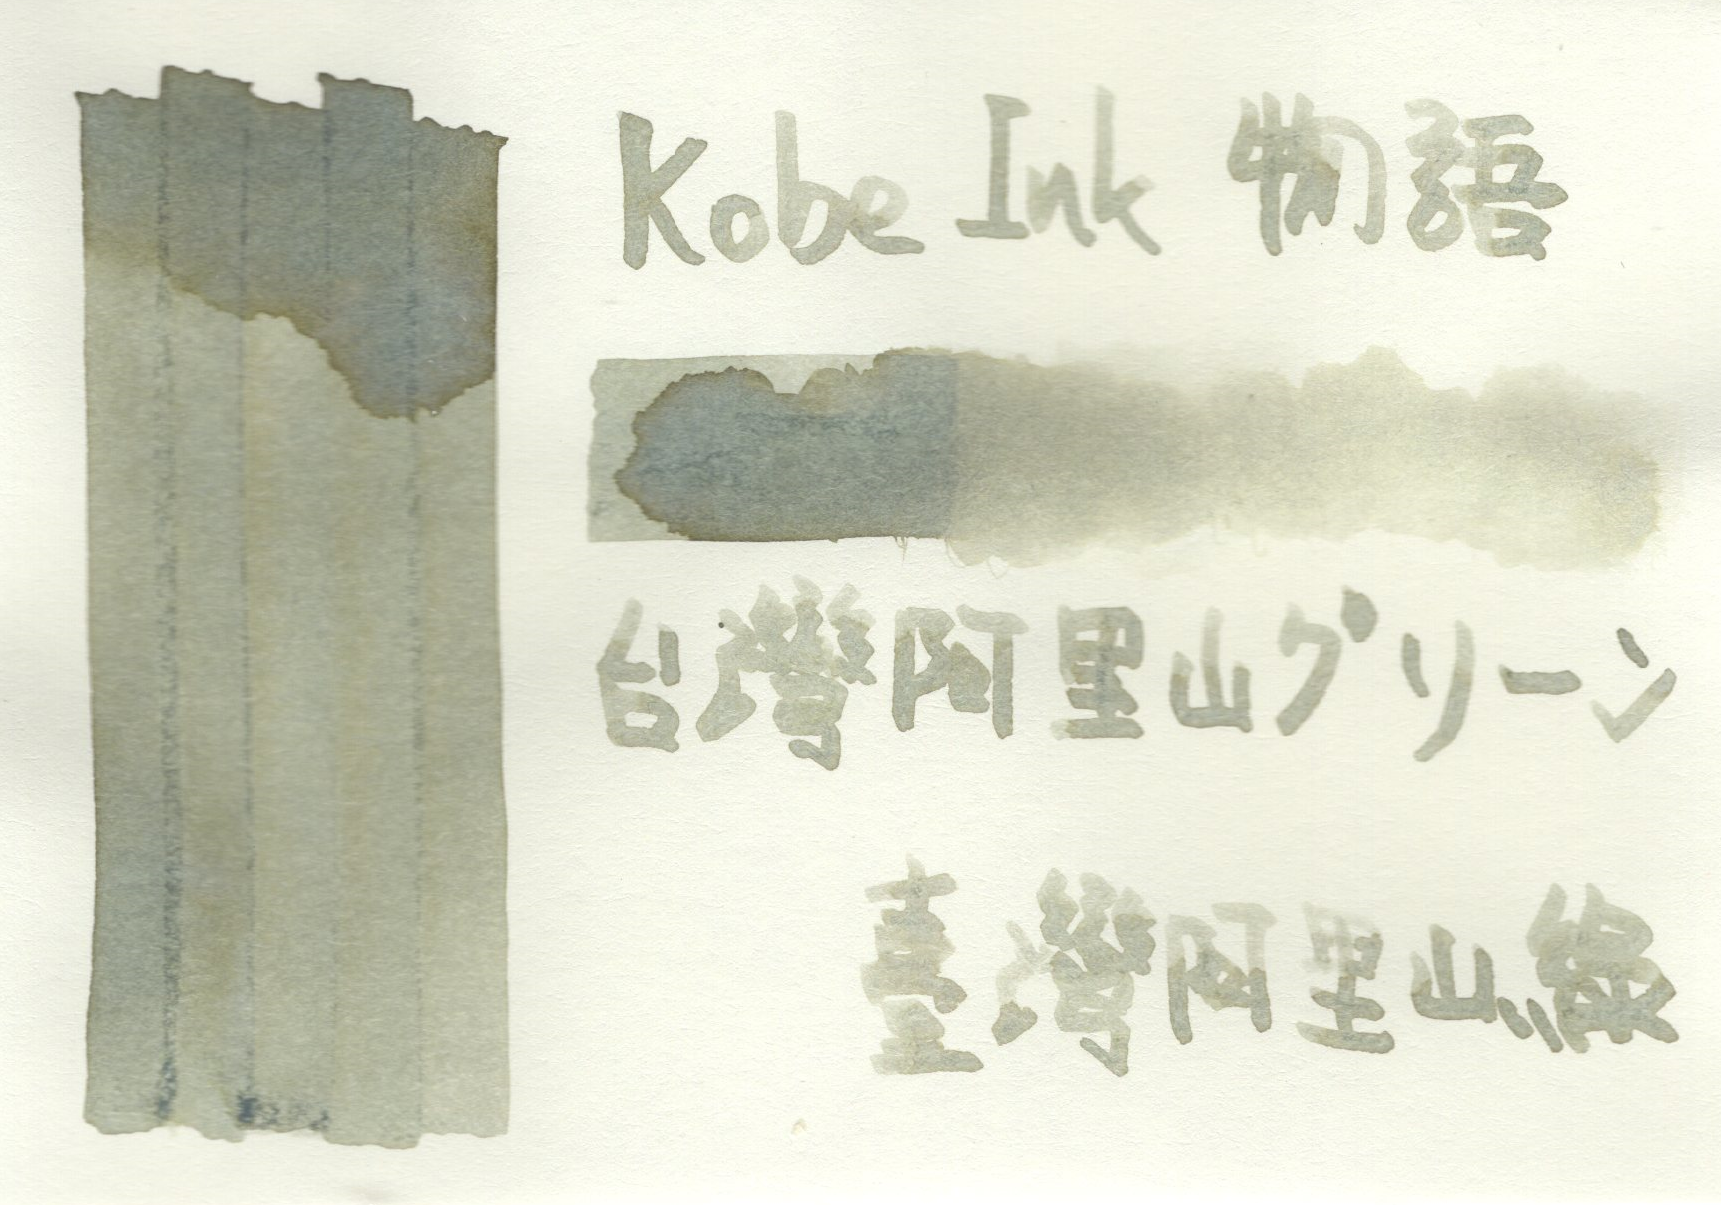 Kobe Ink 物語
台灣阿里山グリーン
臺灣阿里山綠